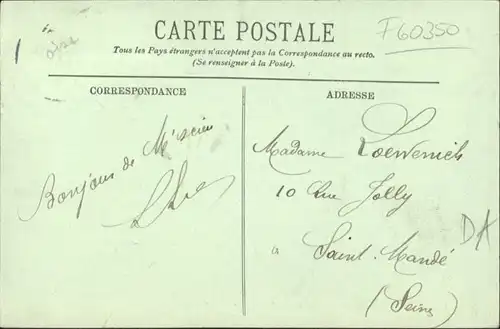 CARTE POSTALE
F60350
Tous les Pays étrangers n'acceptent pas la Correspondance au recto.
(Se renseigner à la Poste).
CORRESPONDANCE
ADRESSE
Bonjour de
Madame Loewenich
10 Rue Jolly
à
Saint-Mandé
(Seine)